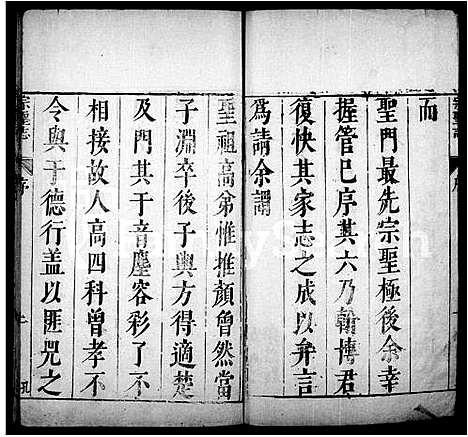 而
聖門最先宗聖極後余幸
握管已序其六乃翰博君
復快其家志之成以弁言
為請余謂
聖祖高弟惟推顏曾然當
子淵卒後子輿方得適楚
及門其于音塵容彩了不
相接故人高四科曾孝不
令與于德行蓋以匪兕之
宗聖志
序